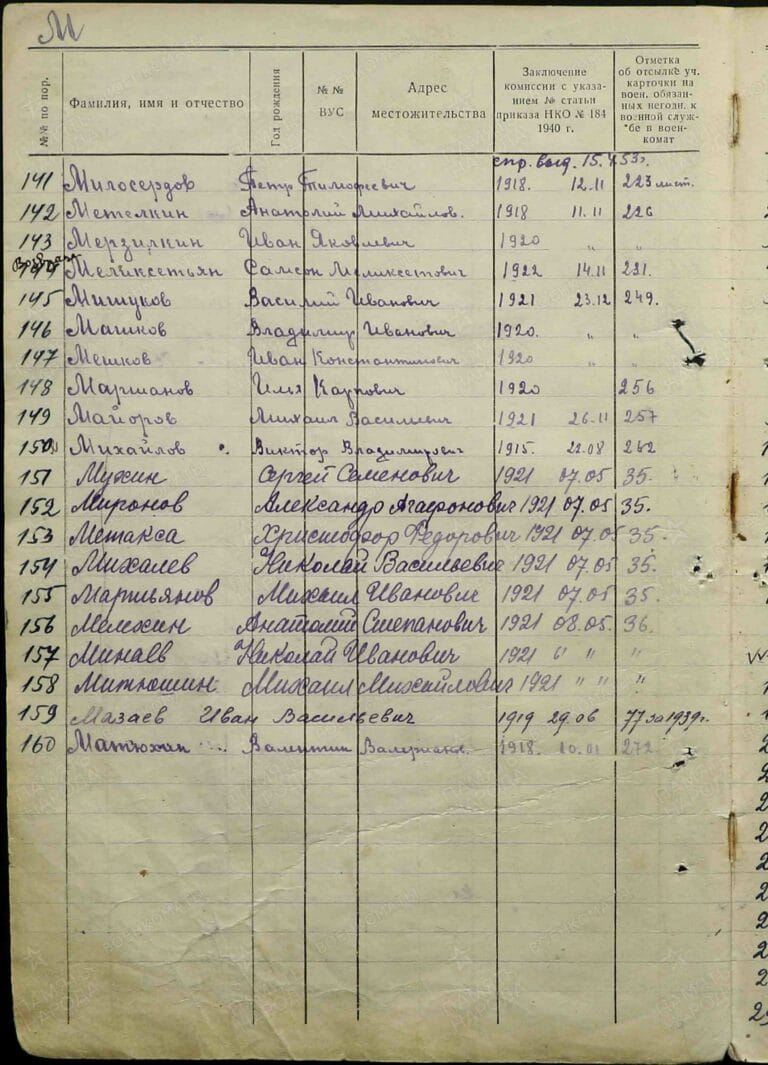 М
№№ по пор.
Фамилия, имя и отчество
Год рождения
№ №
ВУС
Адрес
местожительства
Заключение
комиссии с указа-
нием № статьи
приказа НКО № 184
1940 г.
Отметка
об отсылке уч.
карточки на
воен. обязан-
ных негодн. к
военной служ-
бе в воен-
комат
спр. выд. 15.X.53г.
141 Милосердов Петр Тимофеевич 1918. 12.11 223 лист.
142 Метелкин Анатолий Михайлов. 1918 11.11 226
143 Мерзилкин Иван Яковлевич 1920 " "
Меликсетьян Самсон Меликсетович 1922 14.11 231.
145 Мишуков Василий Иванович 1921 23.12 249.
146 Машков Владимир Иванович 1920. " "
147 Мешков Иван Константинович 1920 " "
148 Маршанов Илья Карпович 1920 256
149 Майоров Михаил Васильевич 1921 26.11 257
150 Михайлов Виктор Владимирович 1915. 22.08 262
151 Мухин Сергей Семенович 1921 07.05 35.
152 Миронов Александр Агафонович 1921 07.05 35.
153 Метакса Христофор Федорович 1921 07.05 35.
154 Михалев Николай Васильевич 1921 07.05 35.
155 Мартьянов Михаил Иванович 1921 07.05 35.
156 Мелехин Анатолий Степанович 1921 08.05. 36.
157 Минаев Николай Иванович 1921 " " "
158 Митюшин Михаил Михайлович 1921 " " "
159 Мазаев Иван Васильевич 1919 29.06 77 за 1939г.
160 Матюхин Валентин 1918. 10.01 272